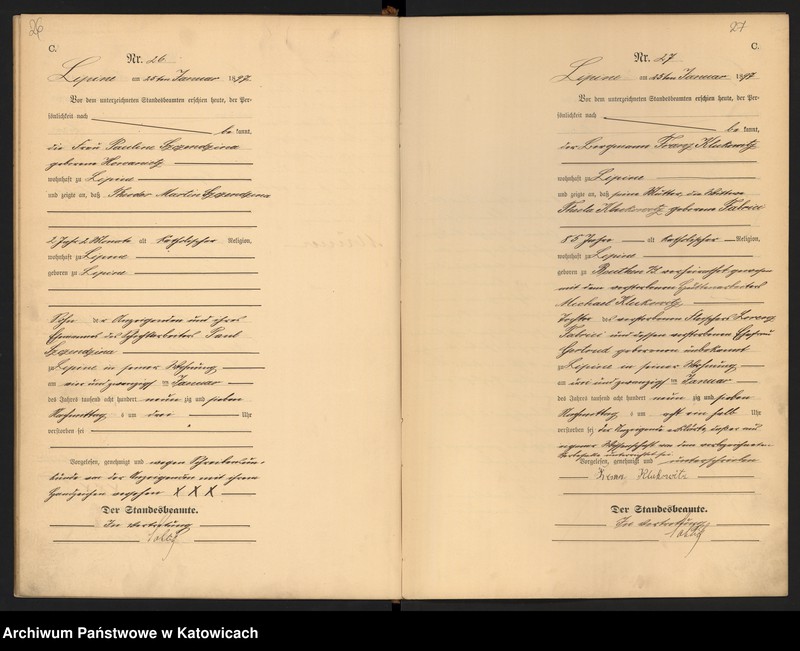 26
C.
Nr. 26
Lipine am 25ten Januar 1897
Vor dem unterzeichneten Standesbeamten erschien heute, der Per-
sönlichkeit nach
be kannt,
die Frau Pauline
geborene
wohnhaft zu Lipine
und zeigte an, daß Theodor Martin
2 Jahr 2 Monate alt katholischer Religion,
wohnhaft zu Lipine
geboren zu Lipine
Sohn der Anzeigenden und ihres
Ehemannes des Paul
zu Lipine in seiner Wohnung
am vier und zwanzigsten Januar
des Jahres tausend acht hundert neun zig und sieben
Nachmittag s um drei Uhr
verstorben sei
Vorgelesen, genehmigt und wegen Schreibensun-
kunde von der Anzeigenden mit ihrem
Handzeichen versehen X X X
Der Standesbeamte.
In Vertretung
27
C.
Nr. 27
Lipine am 25ten Januar 1897
Vor dem unterzeichneten Standesbeamten erschien heute, der Per-
sönlichkeit nach
be kannt,
der Bergmann Franz Klukowitz
wohnhaft zu Lipine
und zeigte an, daß seine Mutter, die Wittwe
Thecla Klukowitz geborene
85 Jahre alt katholischer Religion,
wohnhaft zu Lipine
geboren zu Beuthen verheirathet gewesen
mit dem verstorbenen Hüttenarbeiter
Michael Klukowitz
Tochter des verstorbenen
und dessen verstorbenen Ehefrau
Gertrud geborenen unbekannt
zu Lipine in seiner Wohnung
am und zwanzigsten Januar
des Jahres tausend acht hundert neun zig und sieben
Nachmittag s um acht ein halb Uhr
verstorben sei der Anzeigende erklärte, daß er aus
eigener Wissenschaft von dem
unterrichtet sei
Vorgelesen, genehmigt und unterschrieben
Franz Klukowitz
Der Standesbeamte.
In Vertretung
Archiwum Państwowe w Katowicach